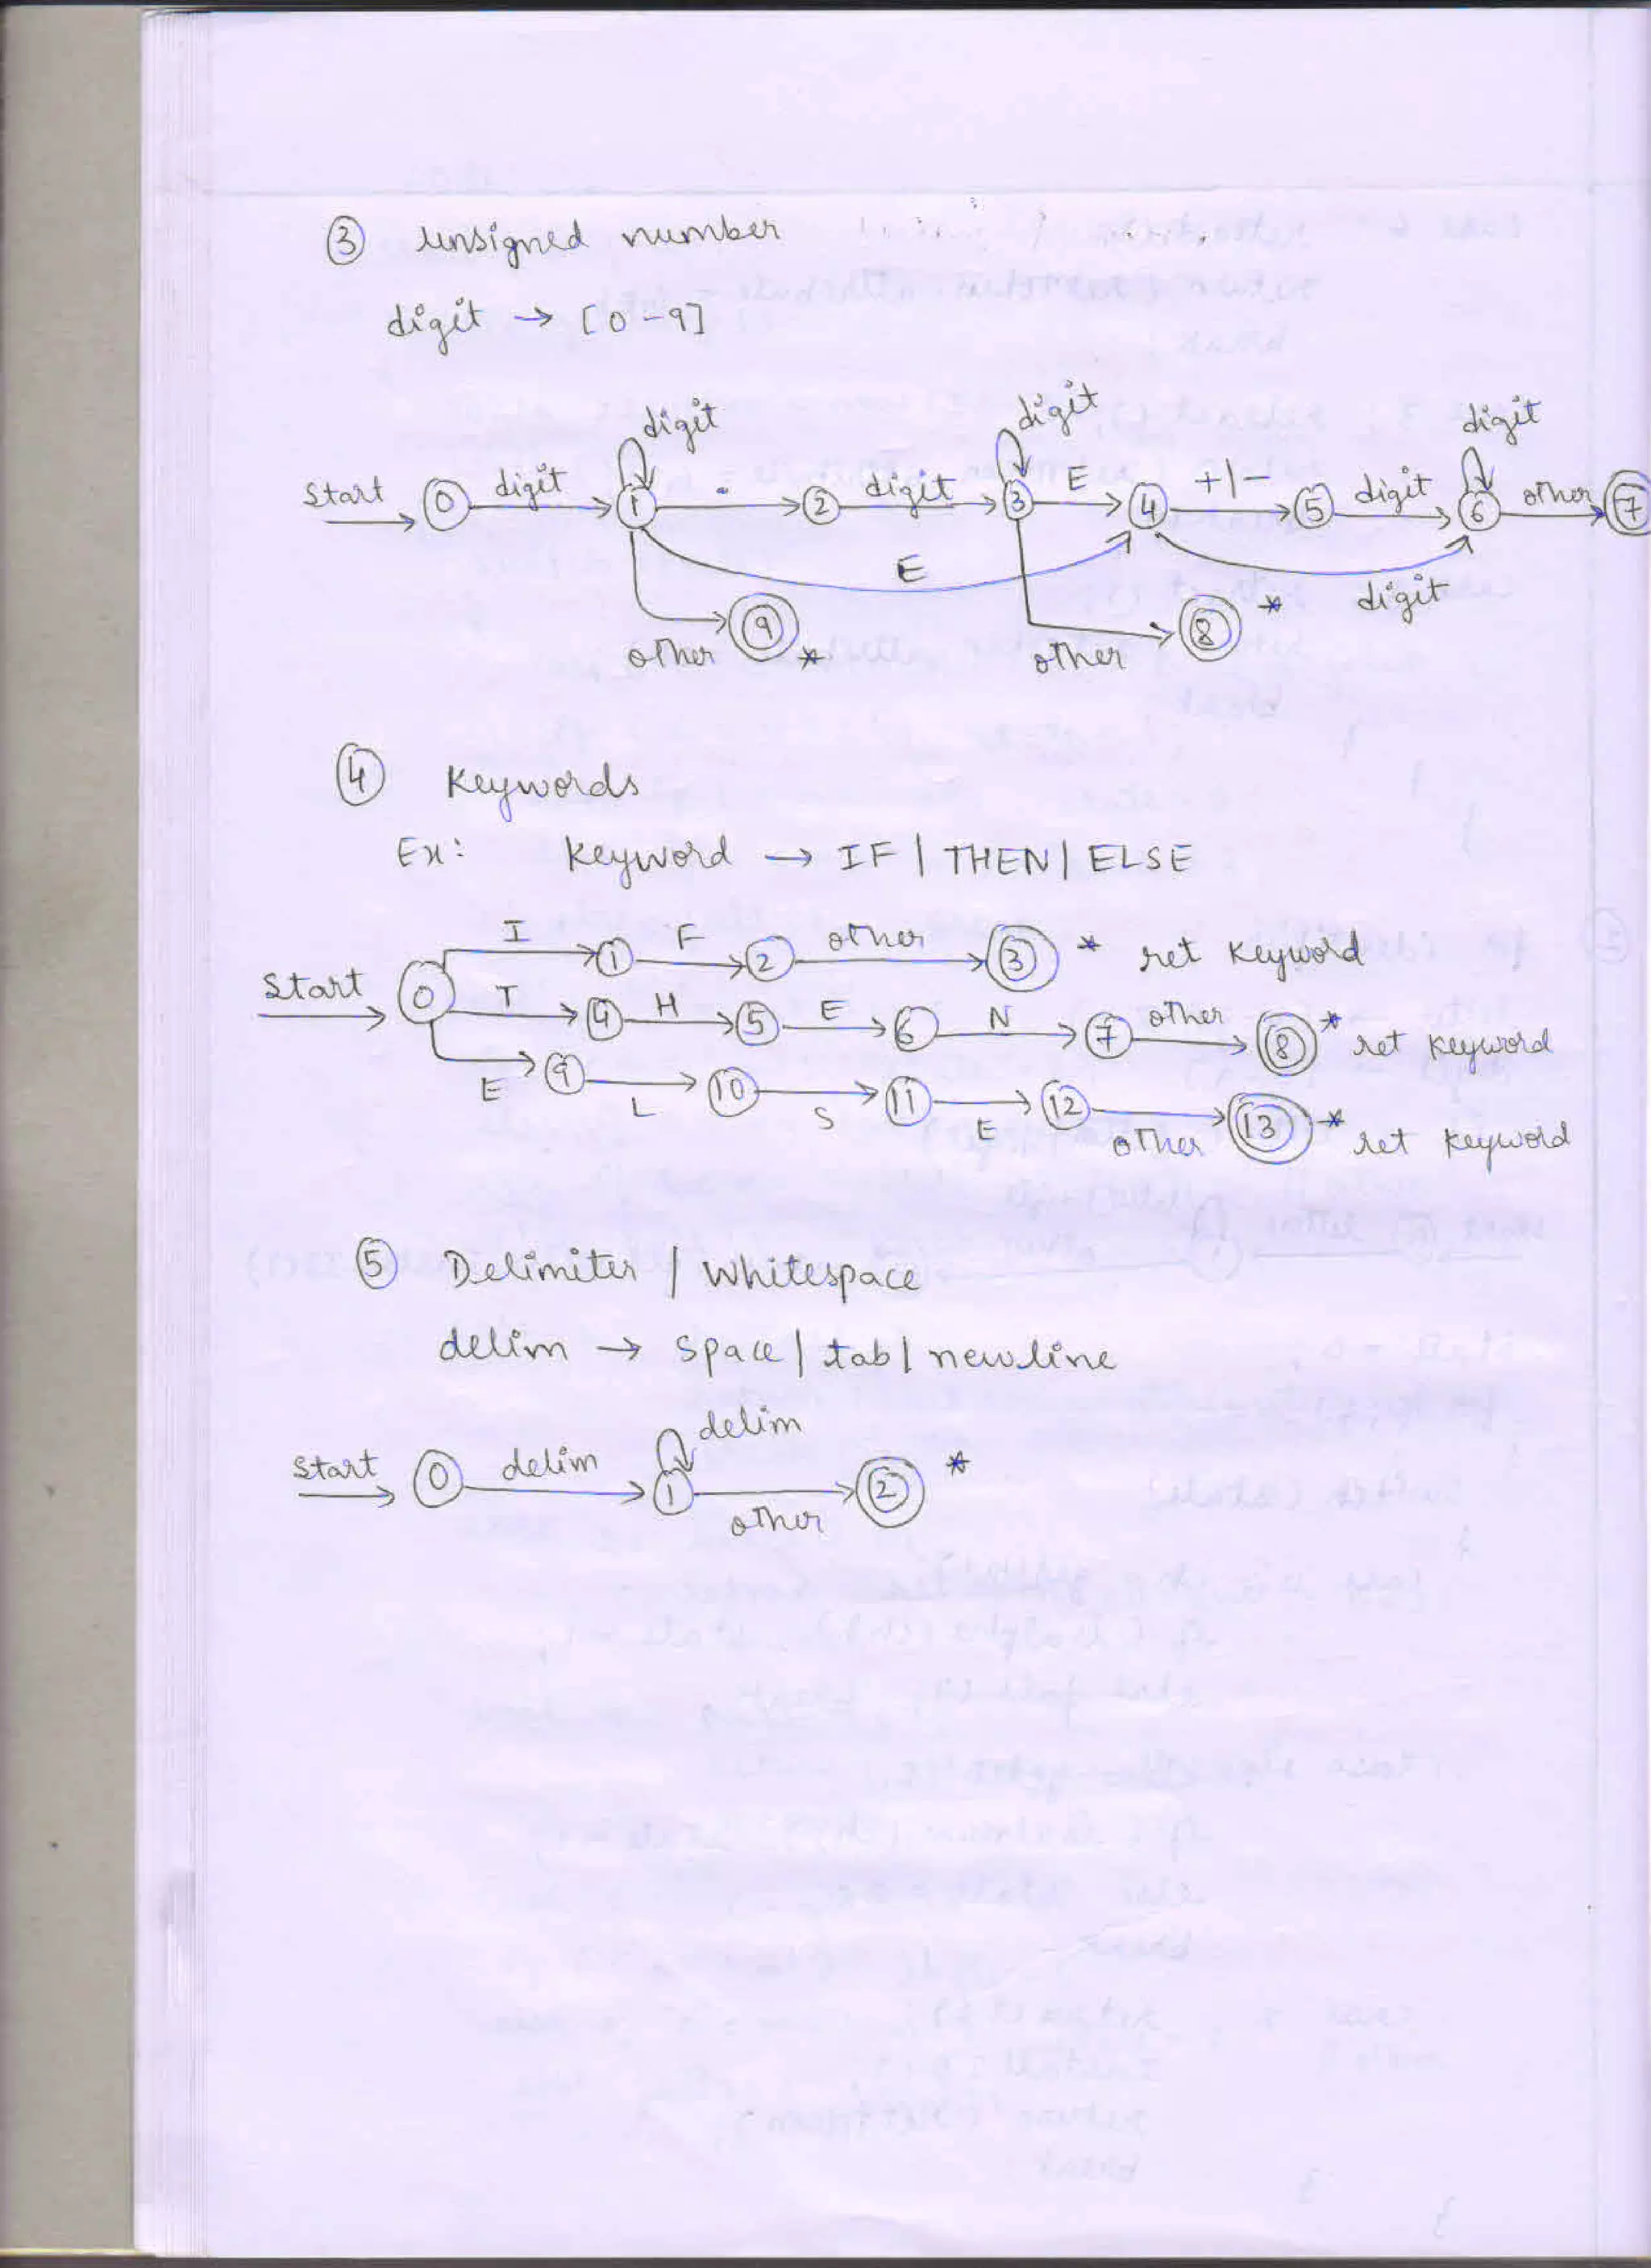 ③ unsigned number
digit → [0-9]
digit digit digit
Start 0 digit 1 . 2 digit 3 E 4 +|- 5 digit 6 other 7
E
9 * 8 * digit
other other
④ Keywords
Ex: keyword → IF | THEN | ELSE
I 1 F 2 other 3 * ret keyword
Start 0 T 4 H 5 E 6 N 7 other 8 * ret keyword
E 9 L 10 S 11 E 12 other 13 * ret keyword
⑤ Delimiter / Whitespace
delim → space | tab | newline
delim
Start 0 delim 1 other 2 *